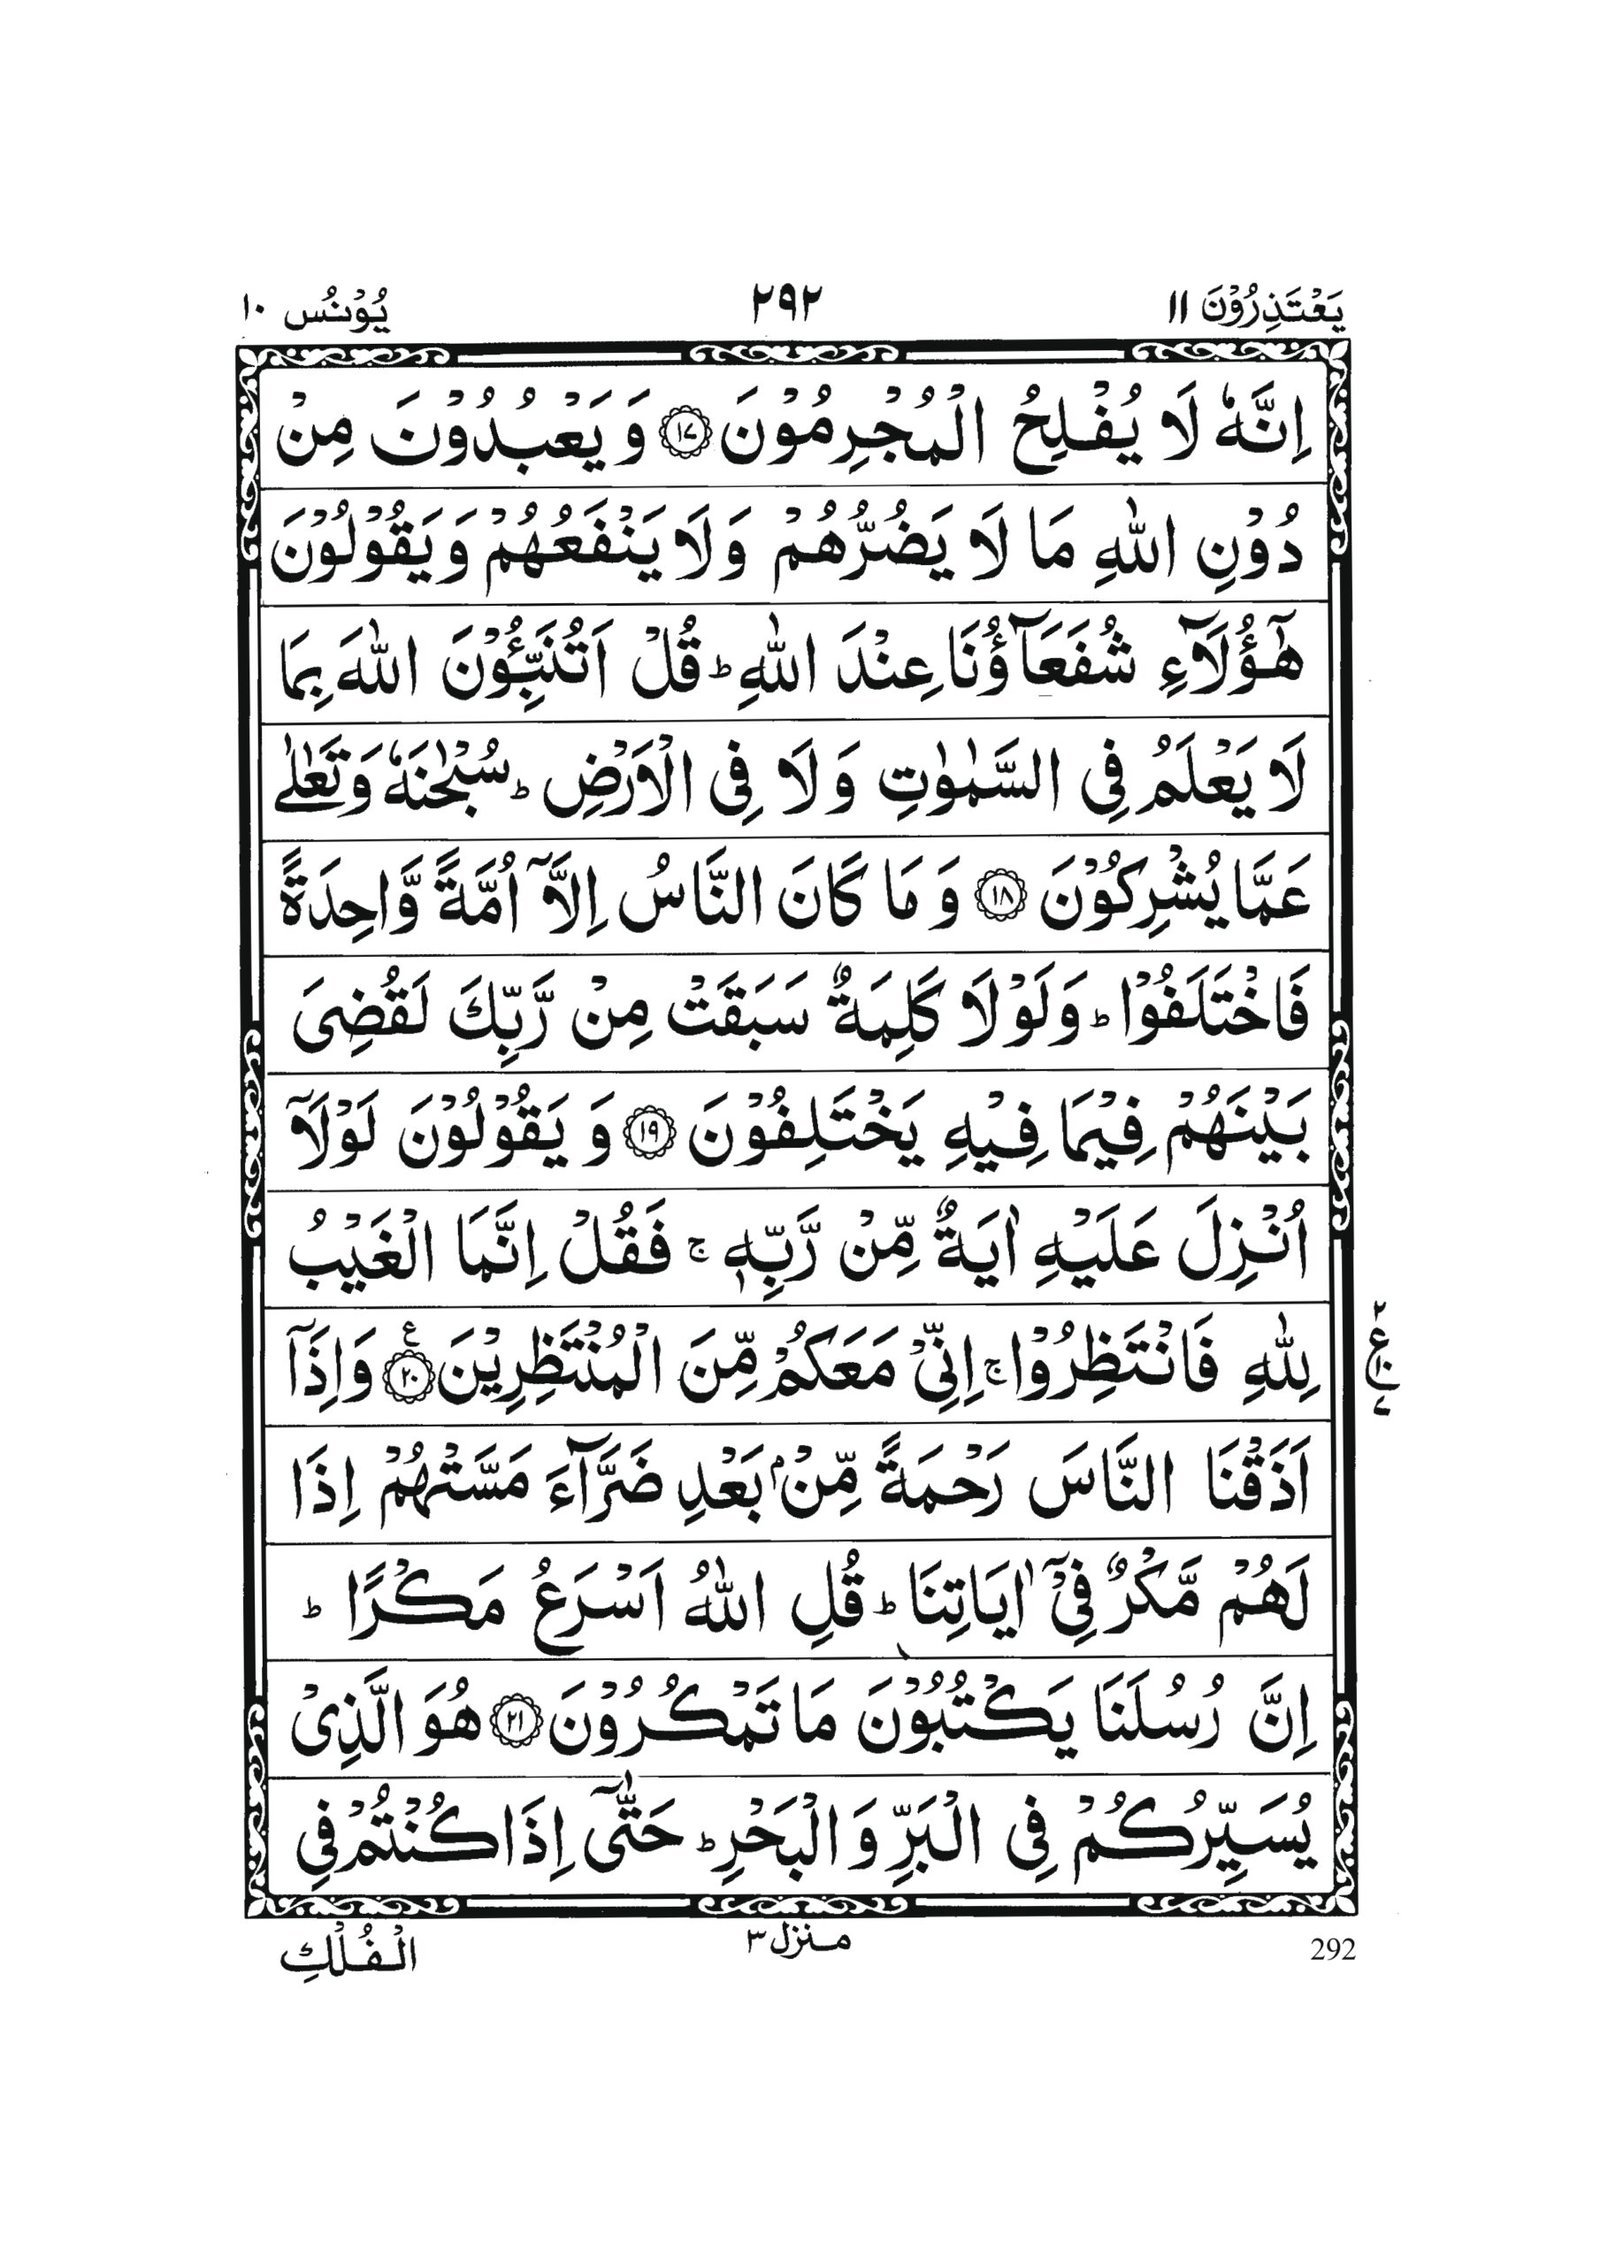 يَعْتَذِرُوْنَ ١١
٢٩٢
يُوْنُس ١٠
اِنَّهٗ لَا يُفْلِحُ الْمُجْرِمُوْنَ ﴿١٧﴾ وَ يَعْبُدُوْنَ مِنْ
دُوْنِ اللّٰهِ مَا لَا يَضُرُّهُمْ وَلَا يَنْفَعُهُمْ وَ يَقُوْلُوْنَ
هٰٓؤُلَآءِ شُفَعَآؤُنَا عِنْدَ اللّٰهِ ؕ قُلْ اَتُنَبِّـُٔوْنَ اللّٰهَ بِمَا
لَا يَعْلَمُ فِى السَّمٰوٰتِ وَ لَا فِى الْاَرْضِ ؕ سُبْحٰنَهٗ وَ تَعٰلٰى
عَمَّا يُشْرِكُوْنَ ﴿١٨﴾ وَ مَا كَانَ النَّاسُ اِلَّاۤ اُمَّةً وَّاحِدَةً
فَاخْتَلَفُوْا ؕ وَلَوْ لَا كَلِمَةٌ سَبَقَتْ مِنْ رَّبِّكَ لَقُضِىَ
بَيْنَهُمْ فِيْمَا فِيْهِ يَخْتَلِفُوْنَ ﴿١٩﴾ وَ يَقُوْلُوْنَ لَوْلَاۤ
اُنْزِلَ عَلَيْهِ اٰيَةٌ مِّنْ رَّبِّهٖ ۚ فَقُلْ اِنَّمَا الْغَيْبُ
لِلّٰهِ فَانْتَظِرُوْا ۚ اِنِّىْ مَعَكُمْ مِّنَ الْمُنْتَظِرِيْنَ ﴿٢٠﴾ ع وَاِذَاۤ
٢ ع ١٠ ٧
اَذَقْنَا النَّاسَ رَحْمَةً مِّنْۢ بَعْدِ ضَرَّآءَ مَسَّتْهُمْ اِذَا
لَهُمْ مَّكْرٌ فِىْۤ اٰيَاتِنَا ؕ قُلِ اللّٰهُ اَسْرَعُ مَكْرًا ؕ
اِنَّ رُسُلَنَا يَكْتُبُوْنَ مَا تَمْكُرُوْنَ ﴿٢١﴾ هُوَ الَّذِىْ
يُسَيِّرُكُمْ فِى الْبَرِّ وَ الْبَحْرِ ؕ حَتّٰۤى اِذَا كُنْتُمْ فِى
292
منزل ٣
الْفُلْكِ